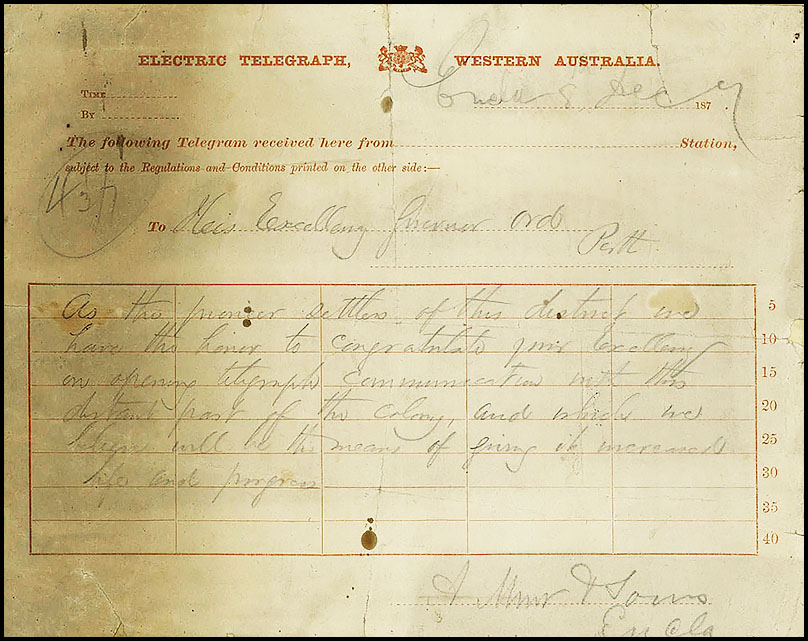 ELECTRIC TELEGRAPH, WESTERN AUSTRALIA.
Time
Dec 187 7
By
The following Telegram received here from Station,
subject to the Regulations and Conditions printed on the other side:—
To His Excellency Governor Ord
Perth
As the pioneer settlers of this district we 5
have the honor to congratulate your Excellency 10
on opening telegraph communication with this 15
distant part of the colony, and which we 20
believe will be the means of giving it increased 25
life and progress 30
35
40
Muir & Sons
Eucla